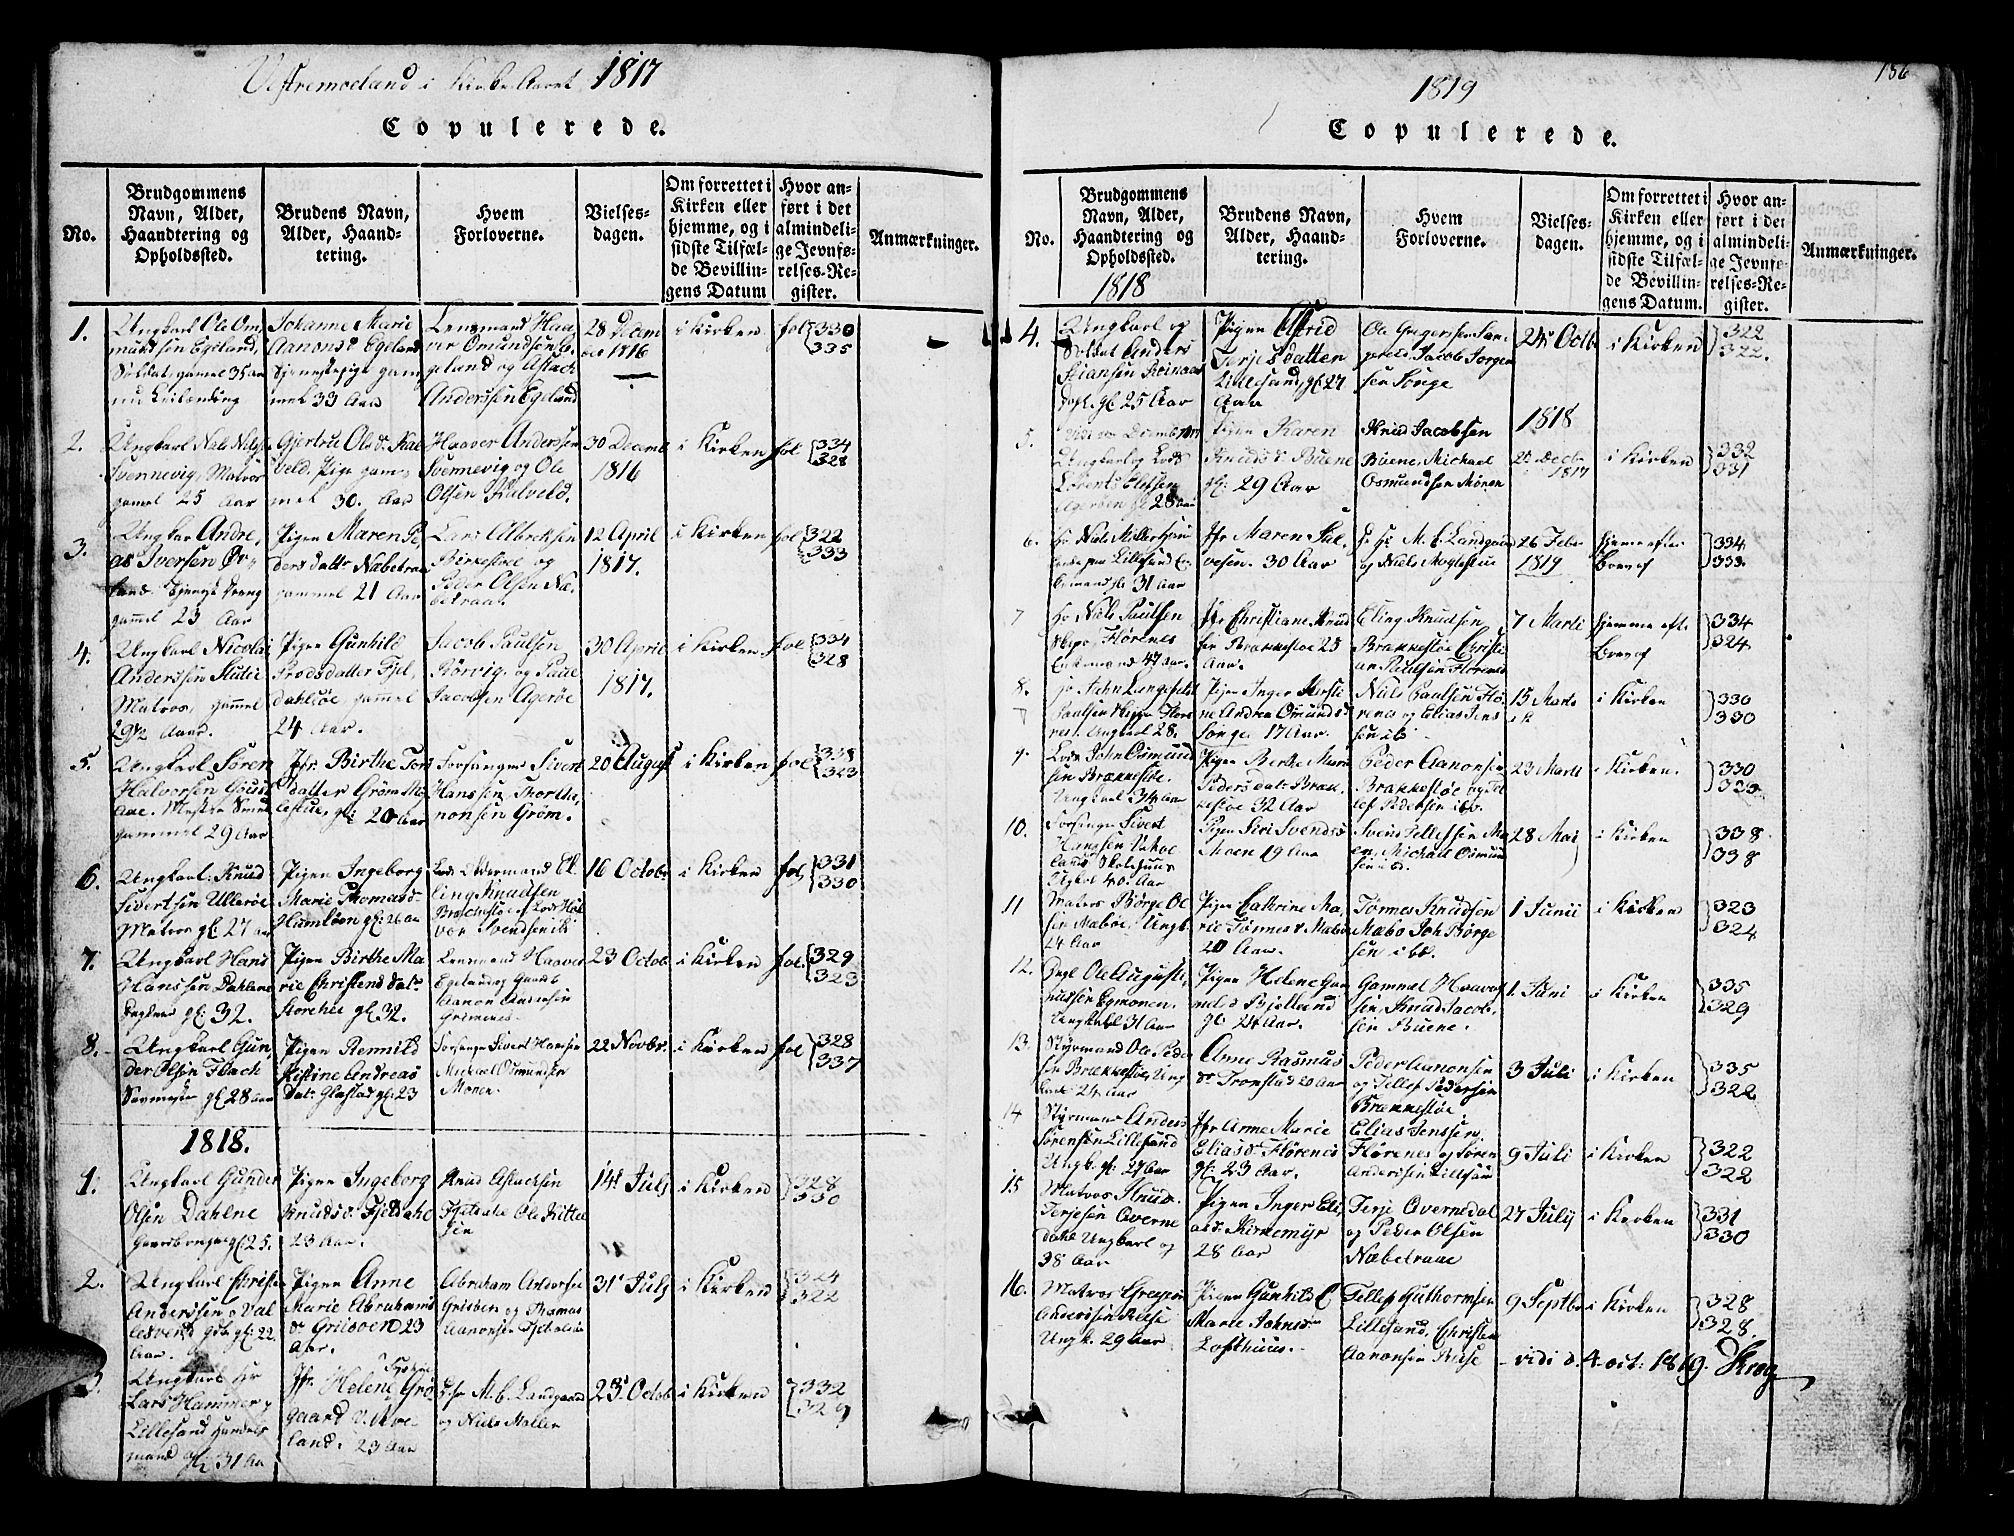 Vestremoeland i Kirke Aaret 1817
Copulerede.
No.
Brudgommens Navn, Alder, Haandtering og Opholdssted.
Brudens Navn, Alder, Haandtering.
Hvem Forloverne.
Vielsesdagen.
Om forrettet i Kirken eller hjemme, og i sidste Tilfælde Bevillingens Datum
Hvor anført i det almindelige Jevnførelses-Register.
Anmærkninger.
1.
Ungkarl Ole Om
mundsen Egeland,
Soldat, gamel 35 aar
nu Leilænding
Johanne Marie
Aanonsd Egeland
Tjenestepige gam
mel 33 Aar
Lensmand Haa
ver Omundsen E
geland og Aslach
Anderssen Egeland
28 Decem
1816
i Kirken
fol 330
335
2.
Ungkarl Niels Niels
Svennevig, Matros
gamel 25 Aar
Gjertru Olsd. Kal
veld. Pige gam
mel 30. Aar
Haaver Anderssen
Svennevig og Ole
Olsen Kalveld.
30 Decemb
1816
i Kirken
fol 334
328
3.
Ungkar Andre,
as Iversen
Tjeneste Dreng
gamel 23 Aar
Pigen Maren Pe
dersdattr Næbetraa
gammel 21 Aar
Lars Albrektsen
Birkestøe og
Peder Olsen Næ
betraa.
12 April
1817.
i Kirken
fol 322
333
4.
Ungkarl Nicolai
Anderssen
Matros, gamel
29½ Aar.
Pigen Gunhild
Troesdatter Fjel,
dahlsøe gammel
24 Aar.
Jacob Paulsen
Rørvig og Paul
Jacobsen Agerøe
30 April
1817.
i Kirken
fol 334
328
5.
Ungkarl Søren
Halvorsen
gammel 29 Aar
Jfr. Birthe Tors
datter Grøm
gl: 20 Aar
Forsanger Sivert
Hanssen, Tortha,
nonsen Grøm.
20 August
i Kirken
fol 338
6.
Ungkarl Knud
Sivertsen Ullerøe
Matros gl: 27 aar
Pigen Ingeborg
Marie Thomasd
Humløen gl: 26 aar
Lods Oldermand El
ling Knudsen
Brækkestøe og Lods Hal
vor Svendsen ib
16 Octobr
i Kirken
fol 331
330
7.
Ungkarl Hans
Hanssen Dahlene
gl: 32.
Pigen Birthe Ma
rie Christens Dat.
gl 32.
Lensmand Haaver
Egeland og Gaardb
Aanon Anderssen
Grimenes
23 Octob
i Kirken
fol 329
323
8.
Ungkarl Gun,
der Olsen
gl 28 aar
Pigen Rennild
Kistine Andreas
Dat. Glastad gl. 23
Forsanger Sivert Hanssen
Michael Osmundsen
Moner
22 Novbr.
i Kirken
fol 328
337
1818.
1.
Ungkarl Gunder
Olsen Dahlne
Gaardbruger gl 25.
Pigen Ingeborg
Knudsd. Fjeldahl
23 Aar.
Knud Aslachsen
Fjeldahl Ole Kittel
sen
14 July
i Kirken
328
330
2.
Ungkarl Christen
Anderssen Val
lesverd gl: 22
Aar.
Pigen Anne
Marie Abrahams
dr Griisven 23
Aar.
Abraham Anderssen
Grisven og Thomas
Aanonsen
31 July
i Kirken
324
322
3.
Ungkarl Hr
Lars Hammer
Lillesand Handels
mand gl 31 Aar
Jfr. Helene Grø
gaard V. Moe
land. 23 Aar
Hr M. C. Landgaard
og Niels Møller
28 Octob
i Kirken
332
329
156
1819
Copulerede.
No.
Brudgommens Navn, Alder, Haandtering og Opholdssted.
1818
Brudens Navn, Alder, Haandtering.
Hvem Forloverne.
Vielsesdagen.
Om forrettet i Kirken eller hjemme, og i sidste Tilfælde Bevillingens Datum.
Hvor anført i det almindelige Jevnførelses-Register.
Anmærkninger.
4.
Ungkarl og
Soldat Anders
Stiansen
gl. 25 Aar
Pigen Astrid
Terjesdatten
Lillesand, gl: 27
Aar
Ole Gregersen
Jacob Jorgen
sen Songe
24 Octb
i Kirken
322
322.
1818
5.
Ungkarl og Lods
Lorents Ellefsen
Agerøen gl 28 aar
Pigen Karen
Knudsd. Buene
gl: 29 Aar
Knud Jacobsen
Buene, Michael
Osmundsen Monen
Decbr
1817
i Kirken
332
331
6.
Hr Niels
Lillesand
31 Aar
Jfr Maren Sal,
vesen. 30 Aar
Hr M. C. Landgaard
og Niels
26 Febr
1819
hjemme efter
Brevet
334
333.
7
Hr Niels Paulsen
Florenes
Enkemand 47 Aar.
Jfr Christiane Knud
sen Brækkestøe 25
Aar.
Eling Knudsen
Brækkestøe Christi
an Paulsen Florenes
7 Marti
hjemme eft.
Brevet
334
324
8.
Hr John Lungefeldt
Paulsen
Ungkarl 28.
Pigen Inger Kersti
ne Andrea Omundsd
Songe 17 Aar.
Niels Paulsen Flo,
renes og Elias Jens
sen ib
15 Marti
i Kirken
330
330
9.
Lods John Osmund
sen Brækkestøe.
Ungkarl 34 Aar
Pigen Berthe Marie
Pedersdat. Bræk
kestøe 32 Aar
Peder Aanonsen
Brækkestøe og Tel
lef Pedersen ibb.
23 Marti
i Kirken
330
10.
Forsanger Sivert
Hanssen
Ungkl 40. Aar
Pigen Siri Svendsd
Moen 19 Aar
Svend Tellefsen Mo
en, Michael Osmun
sen ibd.
28 Mai
i Kirken
338
338
11
Matros Børge Ol
sen Næboe, Ungk
24 Aar
Pigen Cathrine Ma,
rie Tønnesd Næboe
20 Aar.
Tønnes Knudsen
Næbo Joh Børge
sen ibb.
1 Junii
i Kirken
323
324
12.
Ole Augusti
nussen Egmonen.
Ungkarl 31 Aar
Pigen Helene Gam
melsd Fjeldlund
gl. 24 Aar.
Gammel Haavor
sen, Knud Jacob,
sen Buene.
1 Juni
i Kirken
335
329
13.
Styrmand Ole Peder
sen Brækkestøe, Ung
karl 24 aar
Anne Rasmus
dr Tronstad 20 aar
Peder Aanonsen
og Tellef Pedersen
Brækkestøe
3 Juli
i Kirken
335
322
14
Styrmand Anders
Sørensen Lillesand
Ungk. gl: 27 Aar
Jfr Anne Marie
Eliasd Florenes
gl: 23 Aar.
Elias Jenssen,
Florenes og Søren
Anderssen Lillesand
9 Juli
i Kirken
322
322
15
Matros Knud
Terjesen Overne
dahl Ungkarl og
38 Aar
Pigen Inger Eli
asd. Kirkemyr
28 Aar
Terje Overnedal
og Peder Olsen
Næbetraae
27 July
i Kirken
331
330
16.
Matros Gregers
Anderssen
Ungk. 29 Aar
Pigen Gunhild E
Marie Johnsd
Lofthuus.
Tellef Guthormsen
Lillesand, Christen
Aanonsen
9 Septbr
i Kirken
328
328.
vidi d. 4 oct: 1819. Krog